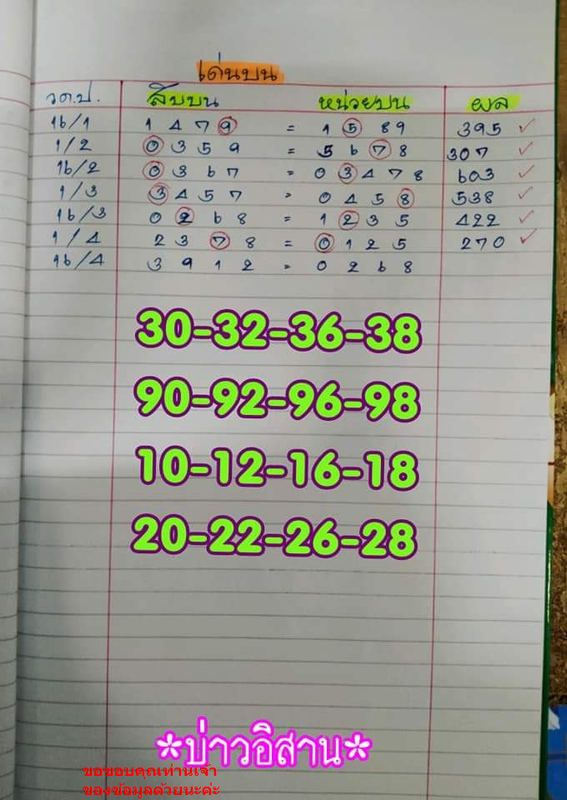 เด่นบน
วดป. สิบบน หน่วยบน ผล
16/1 1 4 7 9 = 1 5 8 9 395 ✓
1/2 0 3 5 9 = 5 6 7 8 307 ✓
16/2 0 3 6 7 = 0 3 4 7 8 603 ✓
1/3 3 4 5 7 = 0 4 5 8 538 ✓
16/3 0 2 6 8 = 1 2 3 5 422 ✓
1/4 2 3 7 8 = 0 1 2 5 270 ✓
16/4 3 9 1 2 = 0 2 6 8
30-32-36-38
90-92-96-98
10-12-16-18
20-22-26-28
*บ่าวอิสาน*
ขอขอบคุณท่านเจ้า
ของข้อมูลด้วยนะค่ะ